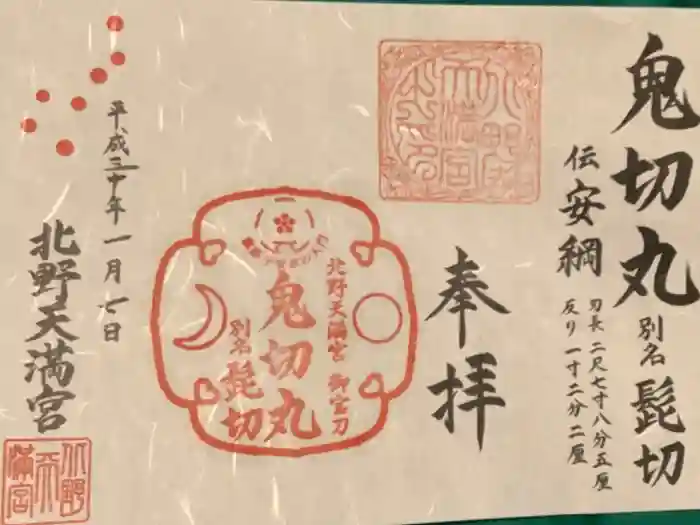 鬼切丸 別名 髭切
伝 安綱
刃長 二尺七寸八分五厘
反り 一寸二分二厘
奉拝
北野天満宮 御宝刀
鬼切丸
別名 髭切
平成三十年一月七日
北野天満宮
北野天満宮